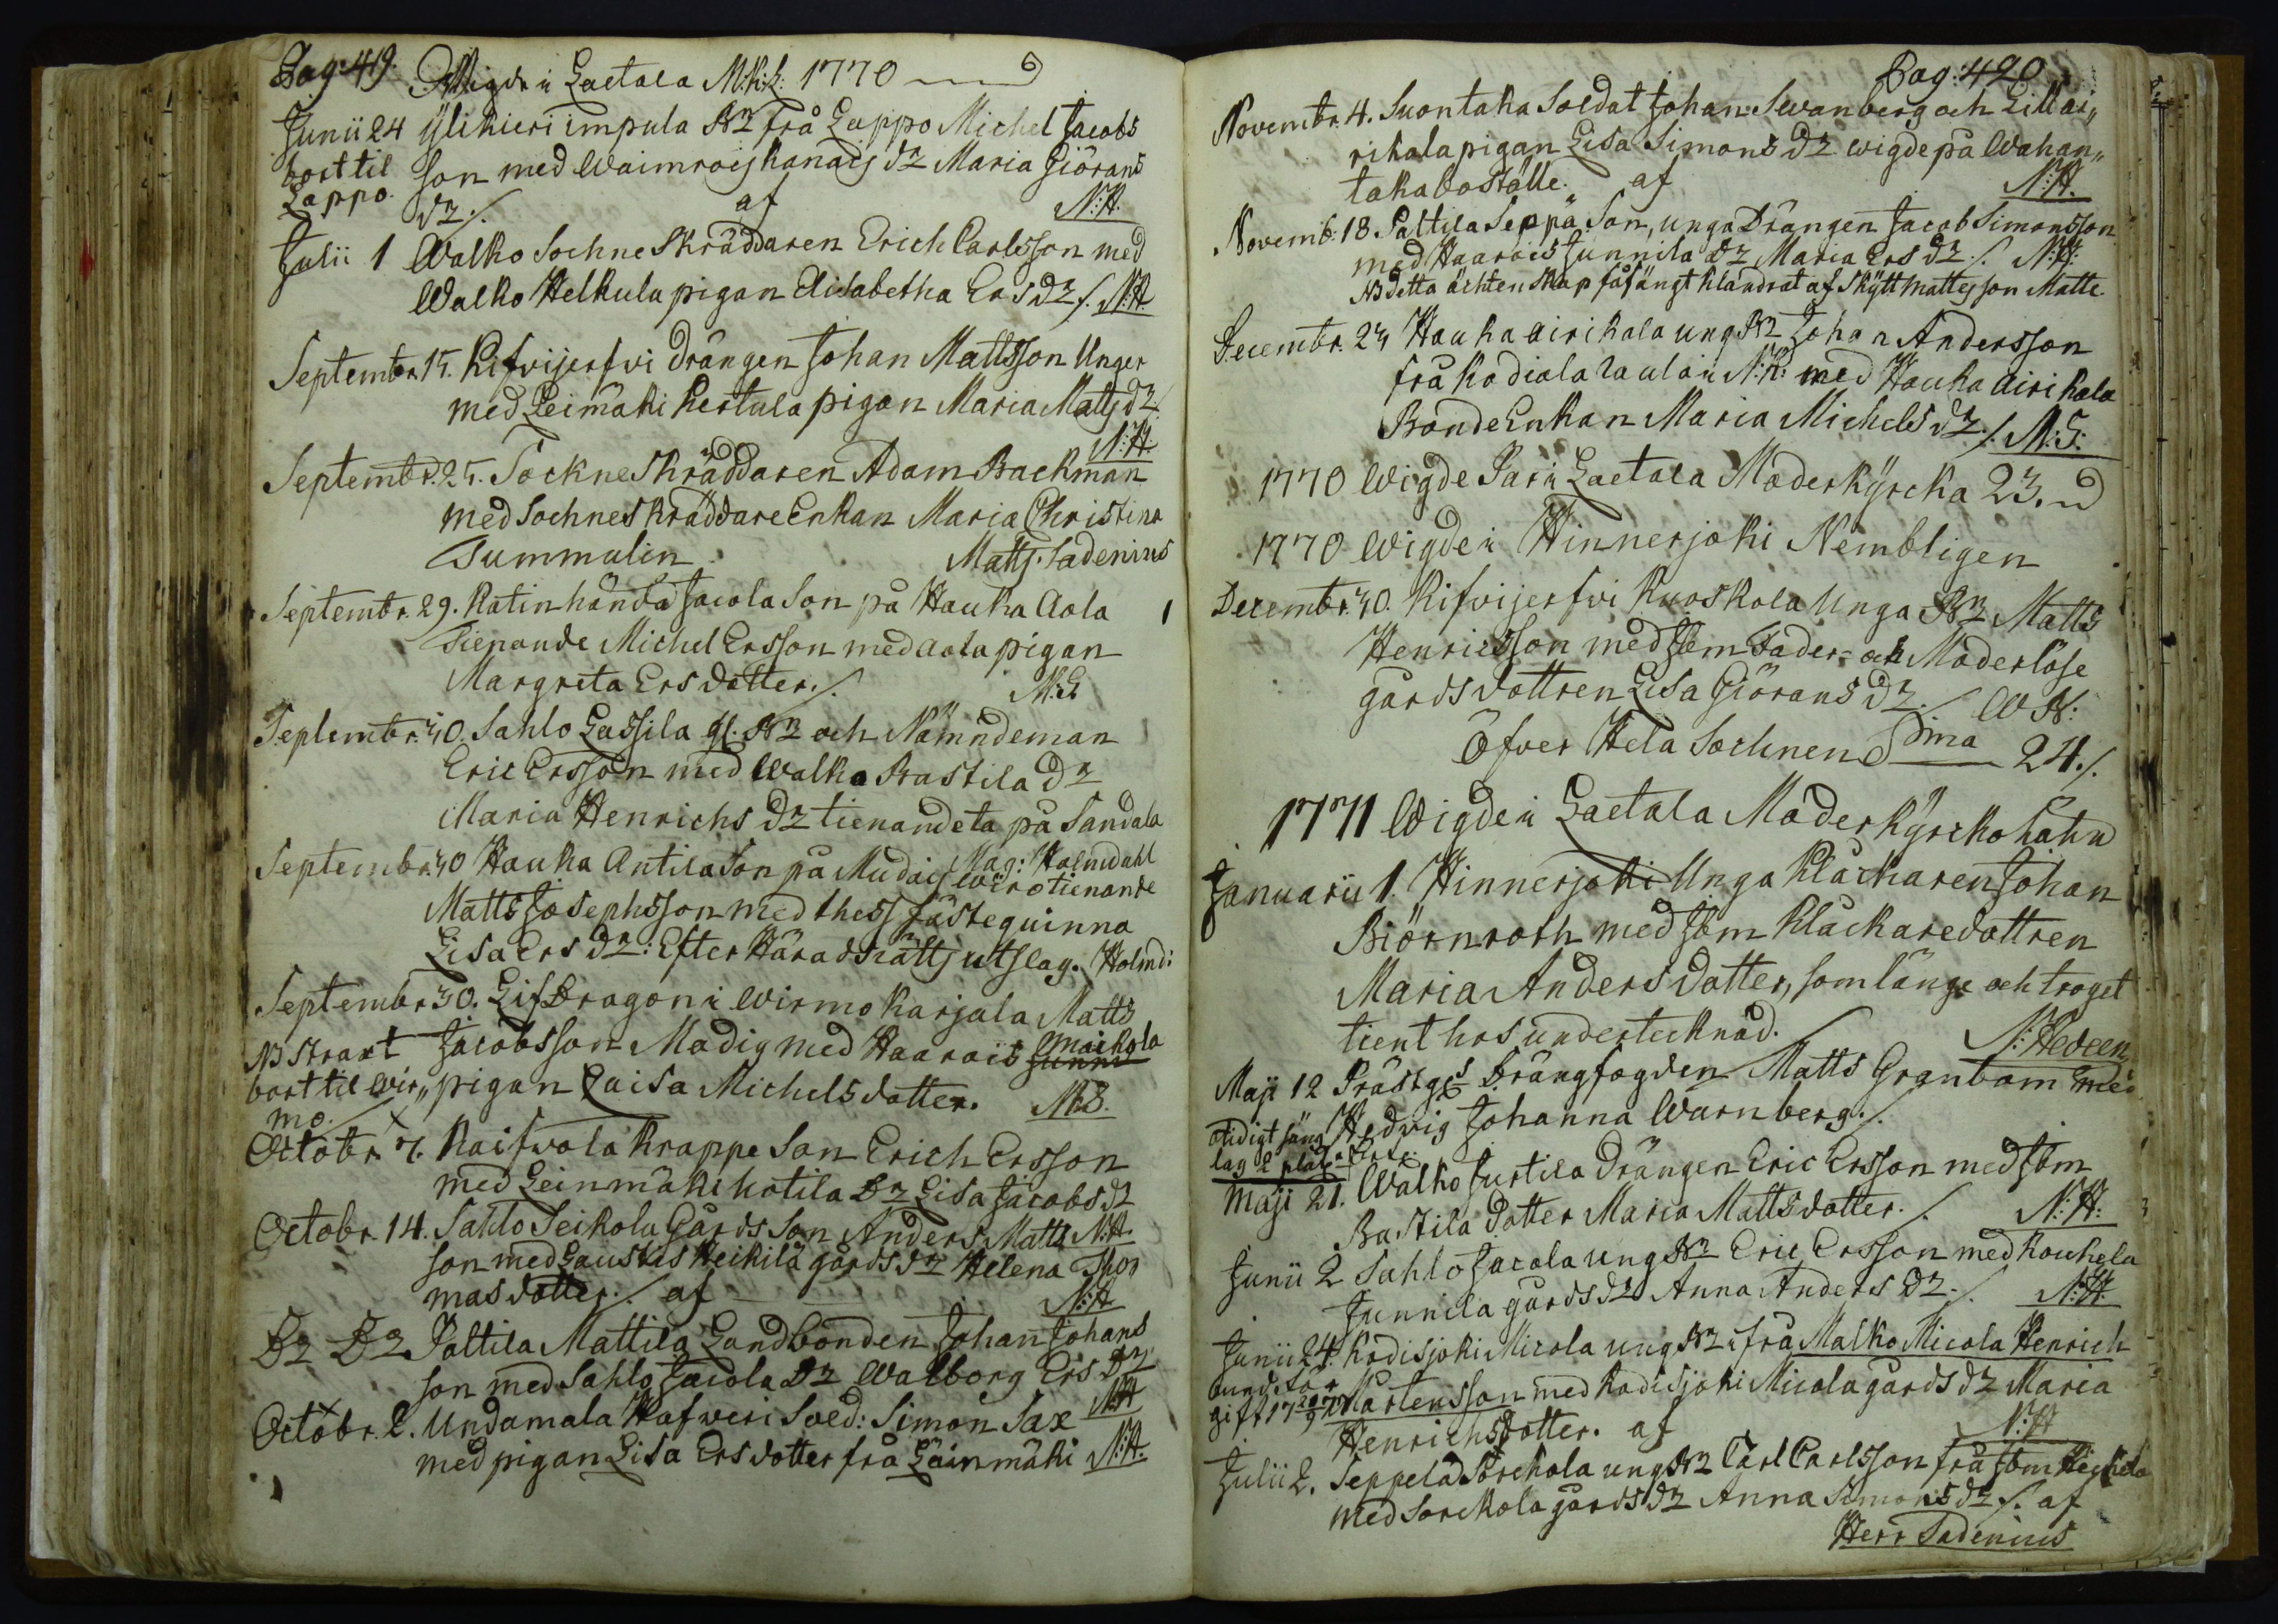 Pag: 419. Wigde i Laetala M:k:k: 1770
Junii 24 ÿlikieri impula Bz frå Lappo Michel Jacobs
bort til son med Waimrois kanais dz Maria Giörans
Lappo. dz ./. af N:H.
Julii 1 Walko Sochne Skräddaren Erich Carlsson med
Walko Helkula pigan Elisabetha Ers dz ./. N:H.
Septembr. 15. Kifvijerfvi Drängen Johan Mattsson Unger
med Leimäki Kertula pigan Maria Matts dz
N:H.
Septembr. 25. Sockne Skräddaren Adam Backman
med Sochne skräddare Enkan Maria Christina
Tummulin. Matts. Sadenius
Septembr. 29. Katinhända Jacola Son på Hauka Aola
Tienande Michel Ersson med Aola pigan
Margreta Ers dotter ./. M:G
Septembr. 30. Sahlo Lassila gl. Bz och Nämndeman
Eric Ersson med Walko Bastila dz
Maria Henrichs dz tienande ta på Sandala
Mag: Holmdahl
Septembr. 30 Hauka Antila Son på Mudais wiro tienande
Matts Josephsson med thess fästequinna
Lisa Ers dz: Efter Häradsrätts utslag. Holmd:
Septembr 30. Lif Dragon i Wirmo Karjala Matts
NB straxt Jacobsson Madig med Haarois Maikola
bort til Wir„ pigan Caisa Michelsdotter. M:S.
mo.
Octobr. 7. Kaifvola Krappe Son Erich Ersson
med Leinmäki kotila Dz Lisa Jacobs dz
Octobr. 14. Sahlo Seikola Gårds Son Anders Matts N:H.
son med Lauskis Heikilä gårds dz Helena Tho
mas dotter ./. af N:H
Dz Dz Paltila Mattila Landbonden Johan Johans
son med Sahlo Jacola Dz Walborg Ers Dz
N:H
Octobr. 2. Undamala Hafveri Sold: Simon Sax
med pigan Lisa Ers dotter frå Läinmäki N:H.
Pag: 420
Novembr. 4. Suontaka Soldat Johan Swanberg och Lillai„
rikala pigan Lisa Simons dz wigde på Wahan„
taka boställe. af N:H.
Novemb: 18. Paltila Seppä Son, unga Drängen Jacob Simonsson
med Haarois Junnila dz Maria Ers dz ./. N:H:
NB detta ächtenskap fåfängt klandrat af Skÿtt mattes son Matte
Decembr. 23 Hauka airikala ung Bz Johan Andersson
frå Kodiala Laula i N:K: med Hauka Airikala
Bonde Enkan Maria Michels dz ./. M:G:
1770 Wigde Par i Laetala Moderkÿrcka 23.
1770 Wigde i Hinnerjoki Nembligen
Decembr. 30. Kifvijerfvi Kuoskola Unga Bz Matts
Henricsson med sbm Fader- och Moderlöse
gårdsdottren Lisa Giörans dz ./. W N:
Öfver Hela Sochnen S:ma 24 ./.
1771 Wigde i Laetala Moderkÿrcko Sahn
Januarii 1. Hinnerjoki Unga Klåckaren Johan
Biörnroth med sbm Klåckaredottren
Maria Anders dotter, som länge och troget
tient hos undertecknad. N: Hedeen
Maji 12 Prästg:s Drängfogden Matts Granbom med
otidigt säng Hedvig Johanna Warnberg ./.
lag 2 plåt.
Maji 21. Walko Justila Drängen Eric Ersson med sbm
Bastila dotter Maria Mattsdotter ./. N:H:
Junii 2 Sahlo Jacola ung Bz Eric Ersson med Kouhela
Junnila gårds dz Anna Anders dz ./. N:H
Junii 24. Kodisjoki Micola ung Bz ifrå Malko Micola Henrich
Mårtensson med Kodisjoki Micola gårds dz Maria
Henrichsdotter. af N:H
Julii 2. Seppelä Sorckola ung Bz Carl Carlsson frå sbm Heickela
med Sorckola gårds dz Anna Simons dz ./. af
Herr Sadenius